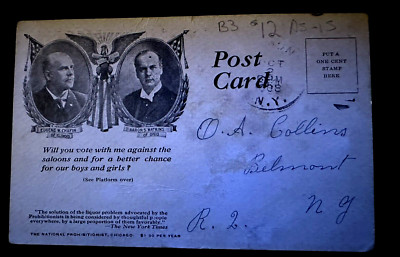 B3 $12
Post
Card
PUT A
ONE CENT
STAMP
HERE
OCT
N.Y.
EUGENE W. CHAFIN
OF ILLINOIS
AARON S. WATKINS
OF OHIO
Will you vote with me against the
saloons and for a better chance
for our boys and girls?
(See Platform over)
O. A. Collins
Belmont
R. 2. N Y
"The solution of the liquor problem advocated by the
Prohibitionists is being considered by thoughtful people
everywhere, by a large proportion of them favorably."
—The New York Times
THE NATIONAL PROHIBITIONIST, CHICAGO. $1.00 PER YEAR